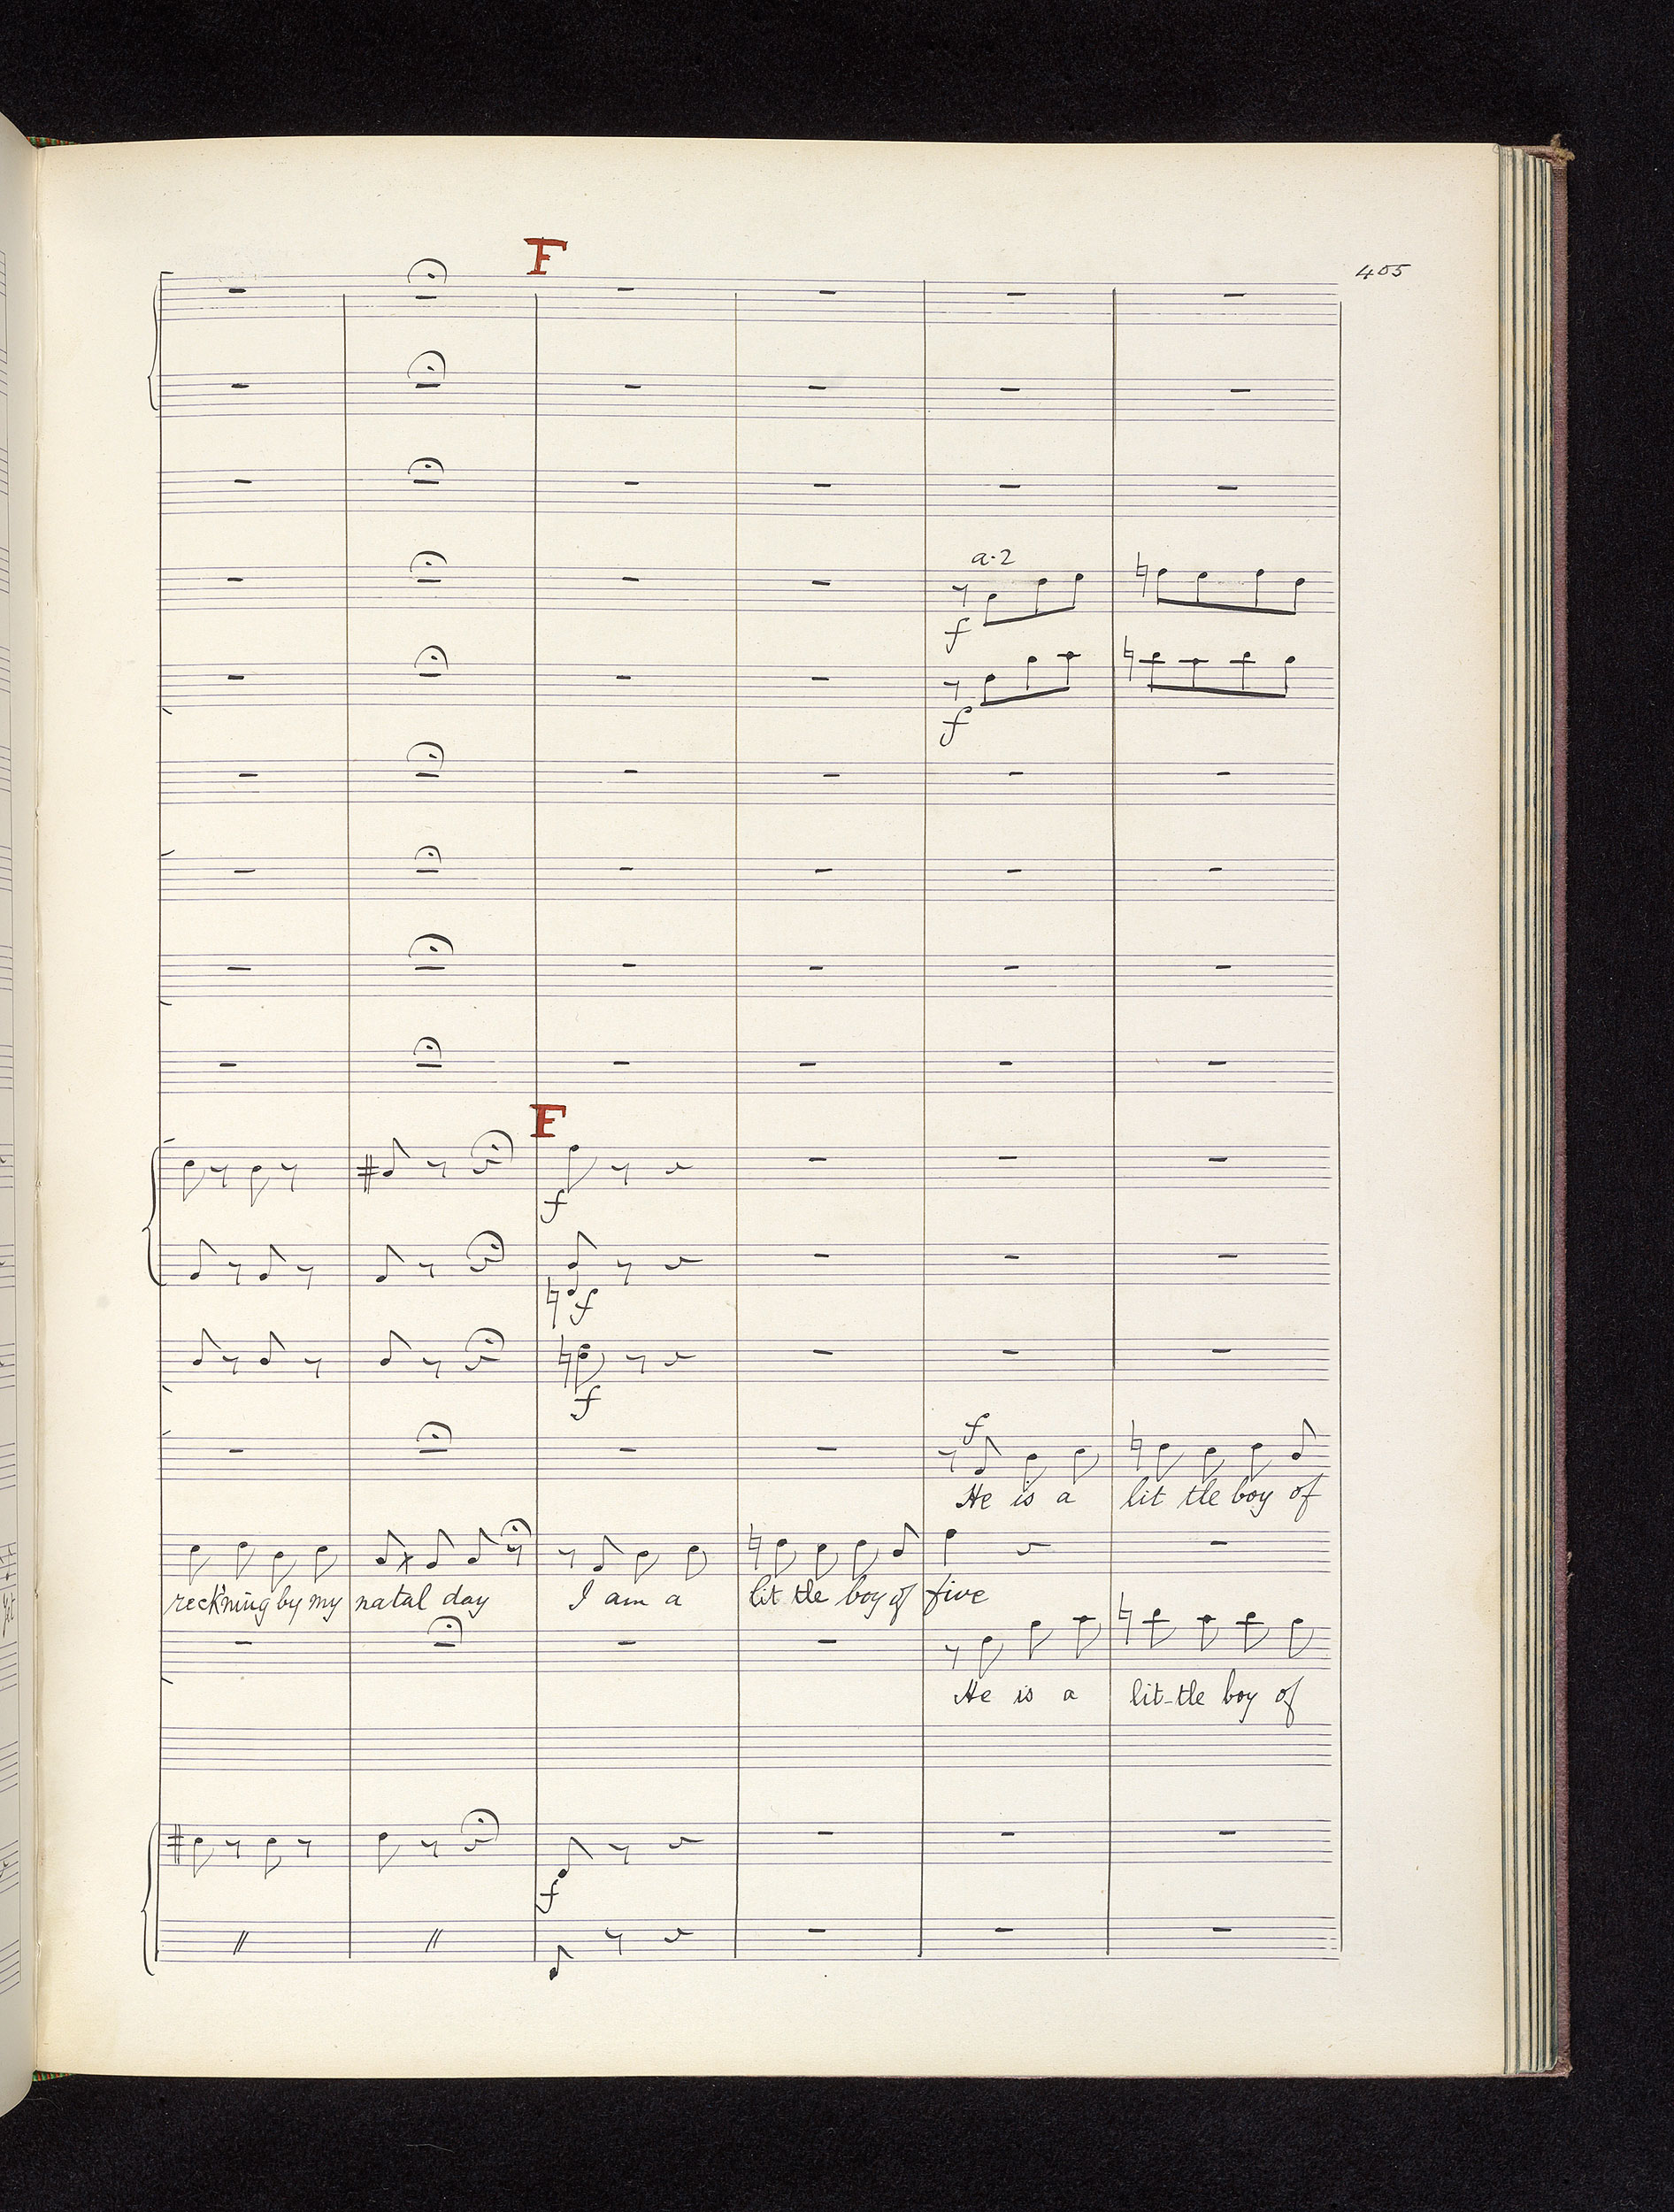 F
405
a.2
f
f
F
f
f
f
f
He is a lit tle boy of
reck'ning by my natal day I am a lit tle boy of five
He is a lit-tle boy of
f